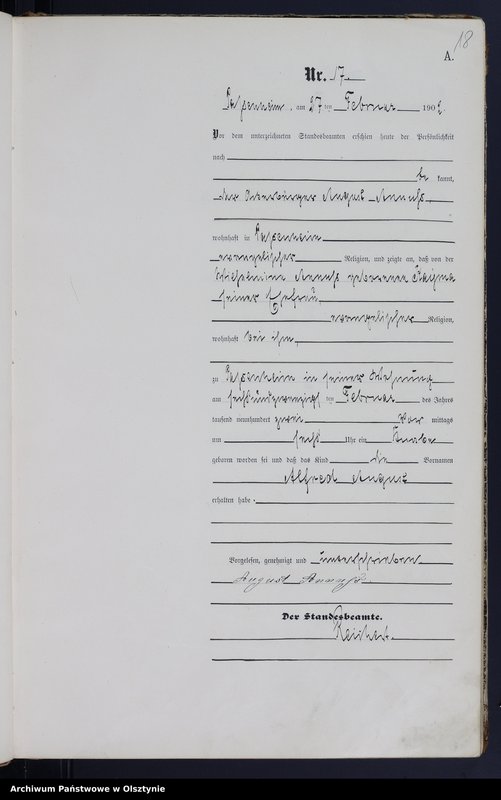 18
A.
Nr. 17.
Passenheim, am 27ten Februar 1902.
Vor dem unterzeichneten Standesbeamten erschien heute der Persönlichkeit
nach
be kannt,
der Ackerbürger August
wohnhaft in Passenheim
evangelischer Religion, und zeigte an, daß von der
Wilhelmine geborenen
seiner Ehefrau
evangelischer Religion,
wohnhaft bei ihm,
zu Passenheim in seiner Wohnung
am sechsundzwanzigsten Februar des Jahres
tausend neunhundert zwei Vor mittags
um sechs Uhr ein Knabe
geboren worden sei und daß das Kind die Vornamen
Alfred August
erhalten habe.
Vorgelesen, genehmigt und unterschrieben
August
Der Standesbeamte.
Reichert.
Archiwum Państwowe w Olsztynie